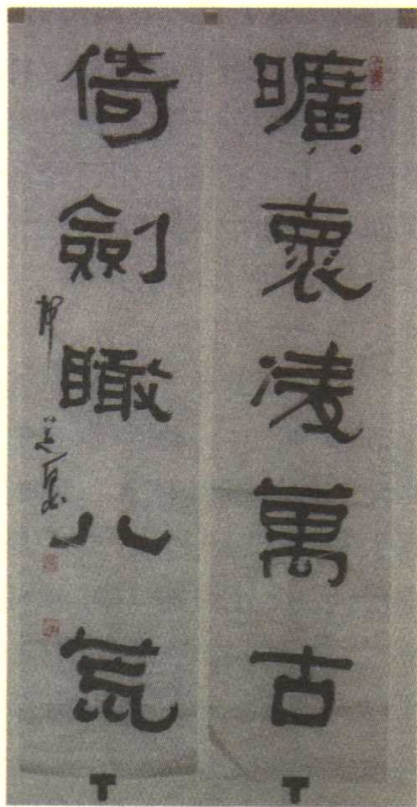 曠襄凌萬古
倚劍瞰八荒